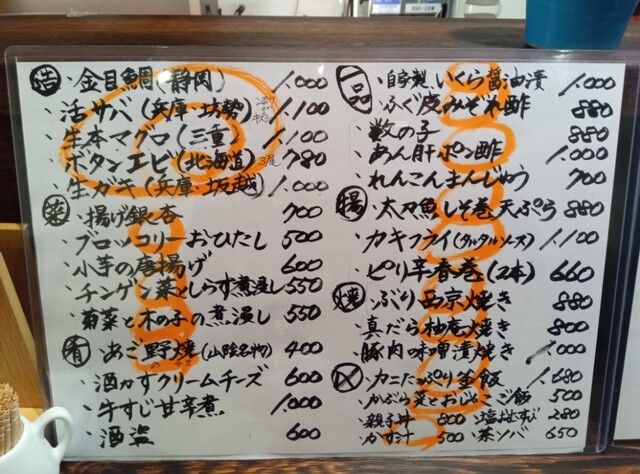 造
・金目鯛(静岡) 1,000
・活サバ(兵庫・坊勢) 1,100
・生本マグロ(三重) 1,100
・ボタンエビ(北海道) 3尾 780
・生ガキ(兵庫・坂越) 1,000
菜
・揚げ銀杏 700
・ブロッコリーおひたし 500
・小芋の唐揚げ 600
・チンゲン菜としらす煮浸し 550
・菊菜と木の子の煮浸し 550
肴
・あご野焼(山陰名物) 400
・酒かすクリームチーズ 600
・牛すじ甘辛煮 1,000
・酒盗 600
一品
・自家製いくら醤油漬 1,000
・ふぐ皮みぞれ酢 880
・数の子 880
・あん肝ポン酢 1,000
・れんこんまんじゅう 700
揚
・太刀魚しそ巻天ぷら 880
・カキフライ(タルタルソース) 1,100
・ピリ辛春巻(2本) 660
焼
・ぶり西京焼き 880
・真だら柚庵焼き 880
・豚肉味噌漬焼き 1,000
〆
・カニたっぷり釜飯 1,680
・かぶら菜とおじゃこご飯 500
・親子丼 800 ・塩むすび 280
・かす汁 500 ・茶ソバ 650